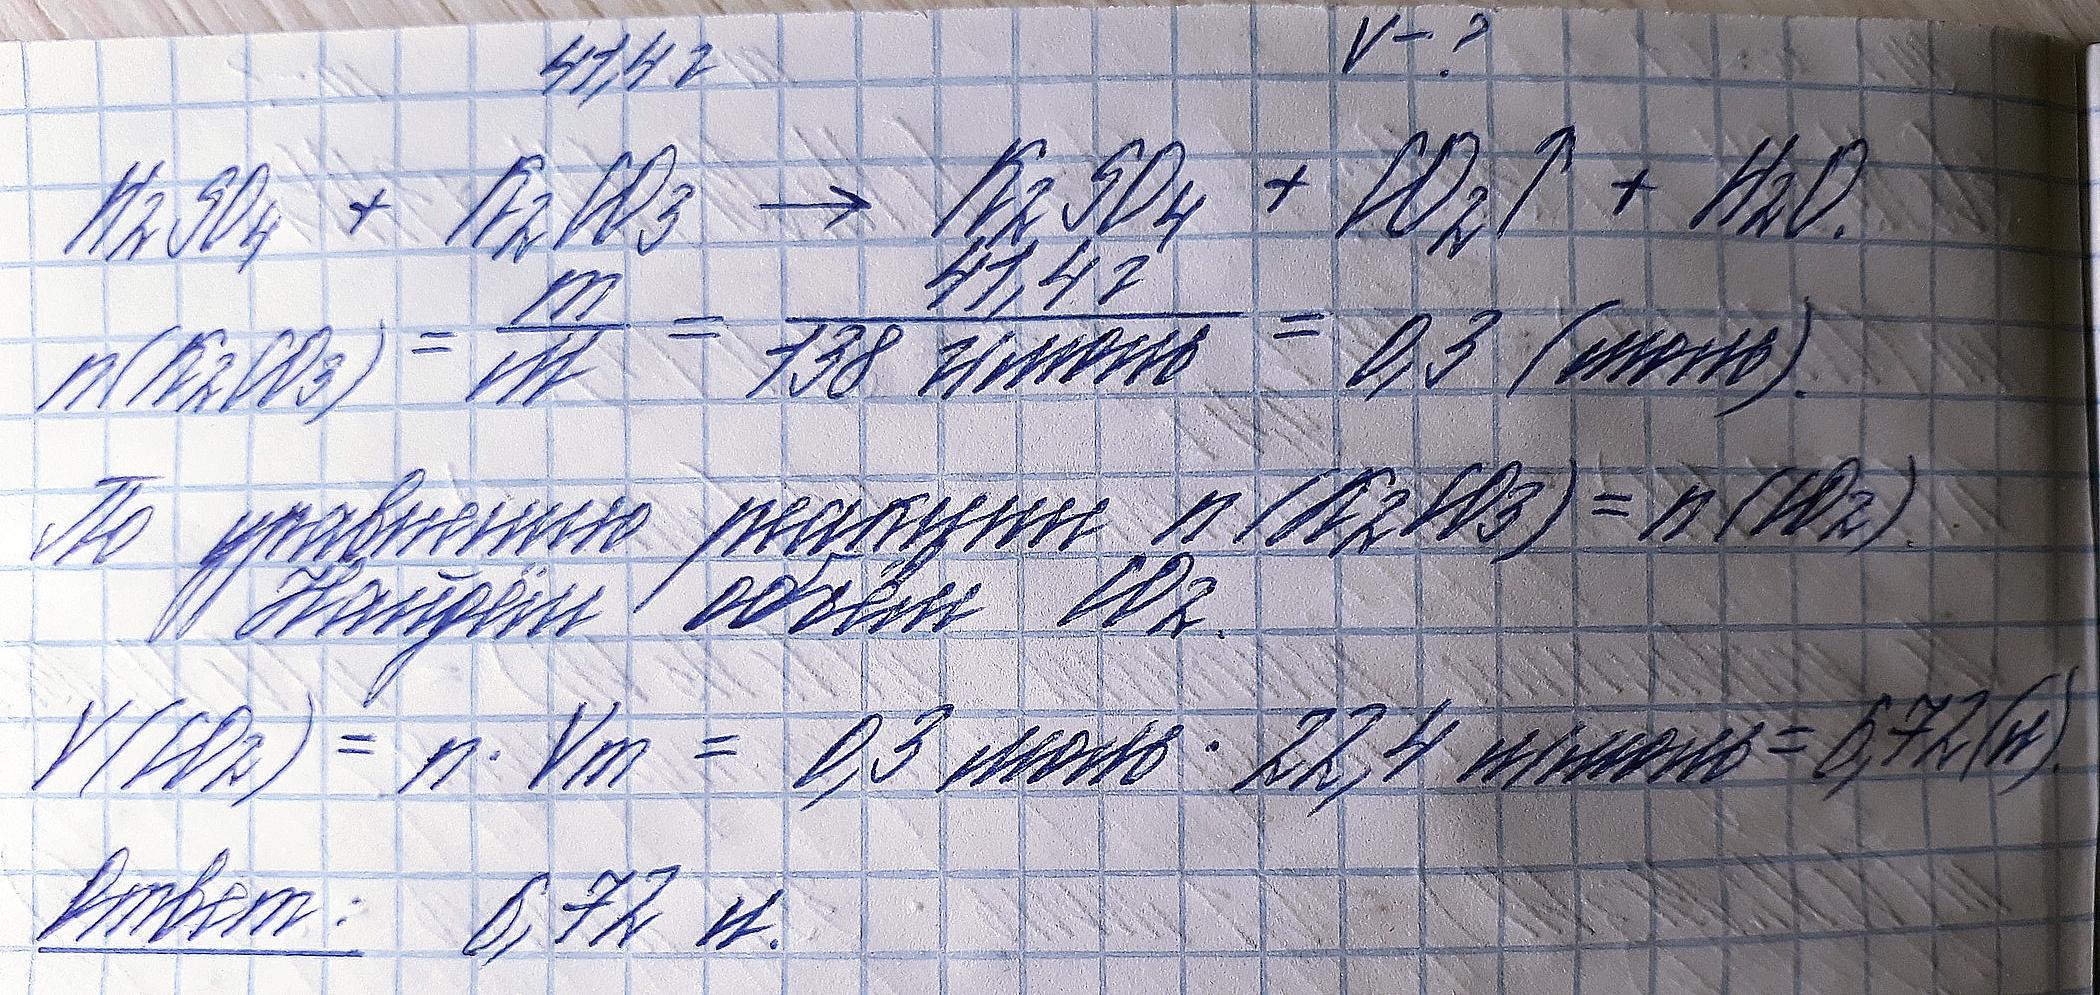 41,4 г V – ?
H₂SO₄ + K₂CO₃ → K₂SO₄ + CO₂↑ + H₂O.
n(K₂CO₃) = m/M = 41,4 г/138 г/моль = 0,3 (моль).
По уравнению реакции n(K₂CO₃) = n(CO₂).
Найдём объём CO₂.
V(CO₂) = n · Vm = 0,3 моль · 22,4 л/моль = 6,72 (л).
Ответ: 6,72 л.